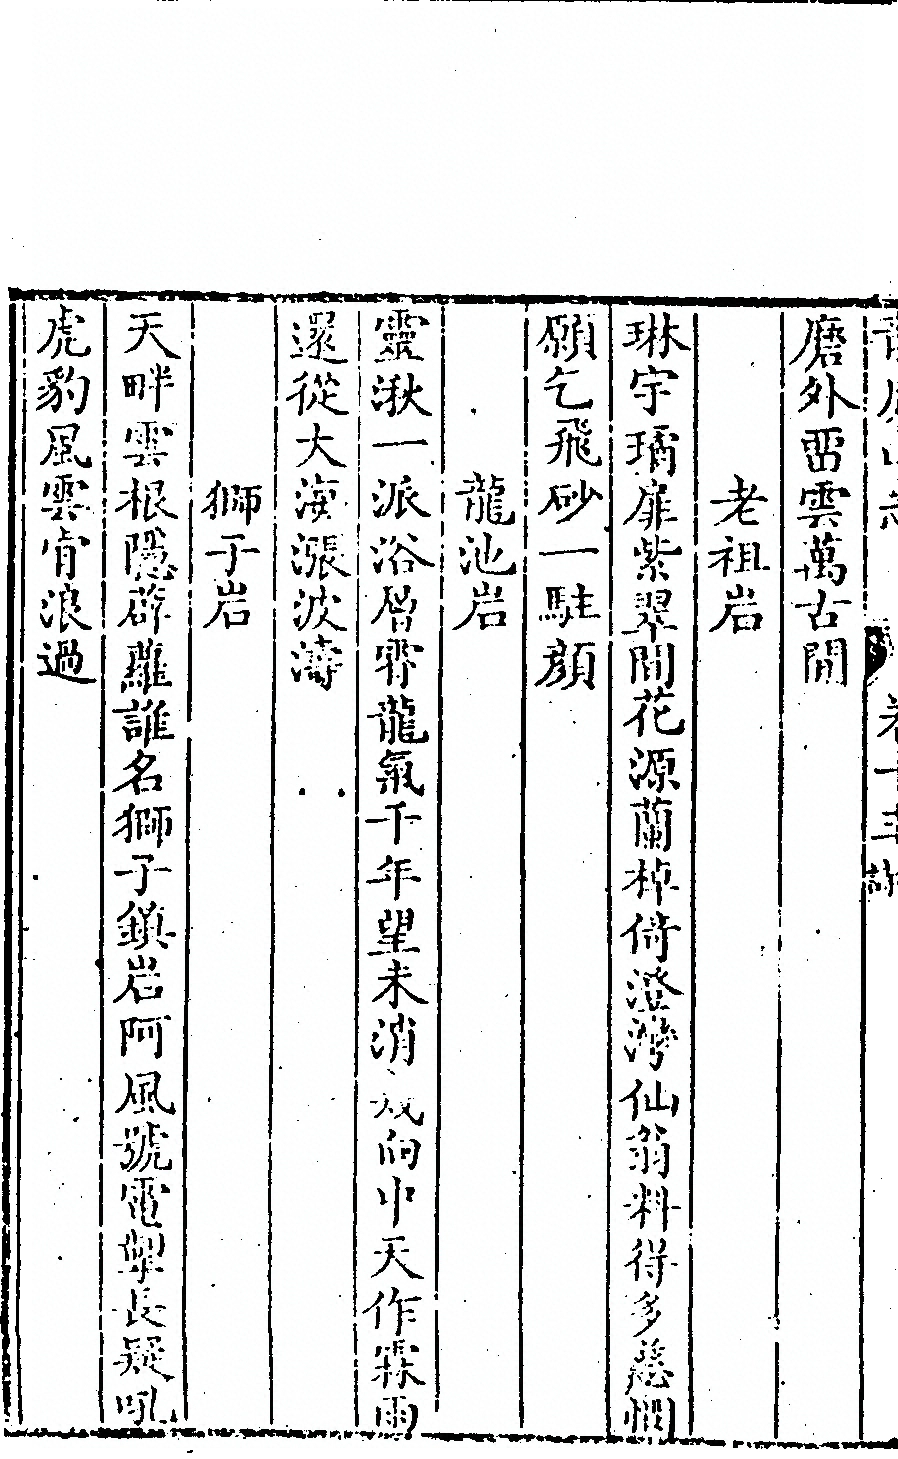 外畱雲萬古閒
老祖岩
琳宇璚扉紫翠間花源蘭棹倚澄灣仙翁料得多慈憫
願乞飛砂一駐顔
龍池岩
靈湫一派浴層霄龍氣千年望未消幾向中天作霖雨
還從大海漲波濤
獅子岩
天畔雲根隱薜蘿誰名獅子鎮岩阿風號電掣長疑吼
虎豹風雲肯浪過